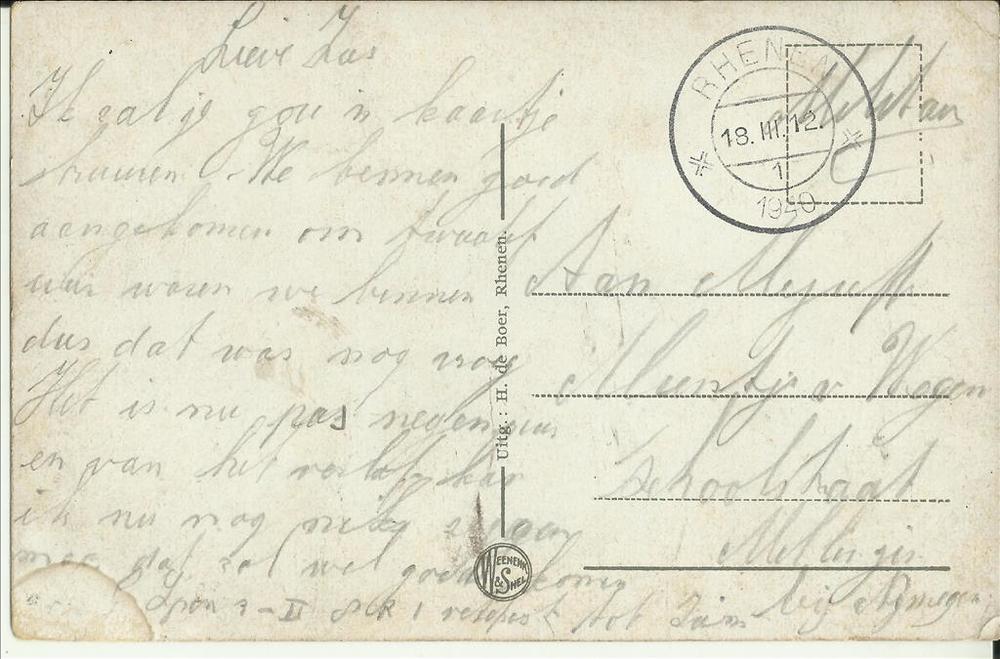 Lieve Zus
Ik zal je gou n kaartje
We bennen goed
aangekomen om twaalf
uur waren we binnen
dus dat was nog vroeg
Het is nu pas negen uur
en van het verlof kan
ik nu nog niks
maar dat zal wel goed komen
3-II 8 R I tot Ziens
RHENEN
18.III.12.
1
1940
Militair
Aan Mejuff
Mientje v Hagen
Schoolstraat
Millingen
bij Nijmegen
Uitg.: H. de Boer, Rhenen.
WEENENK & SNEL